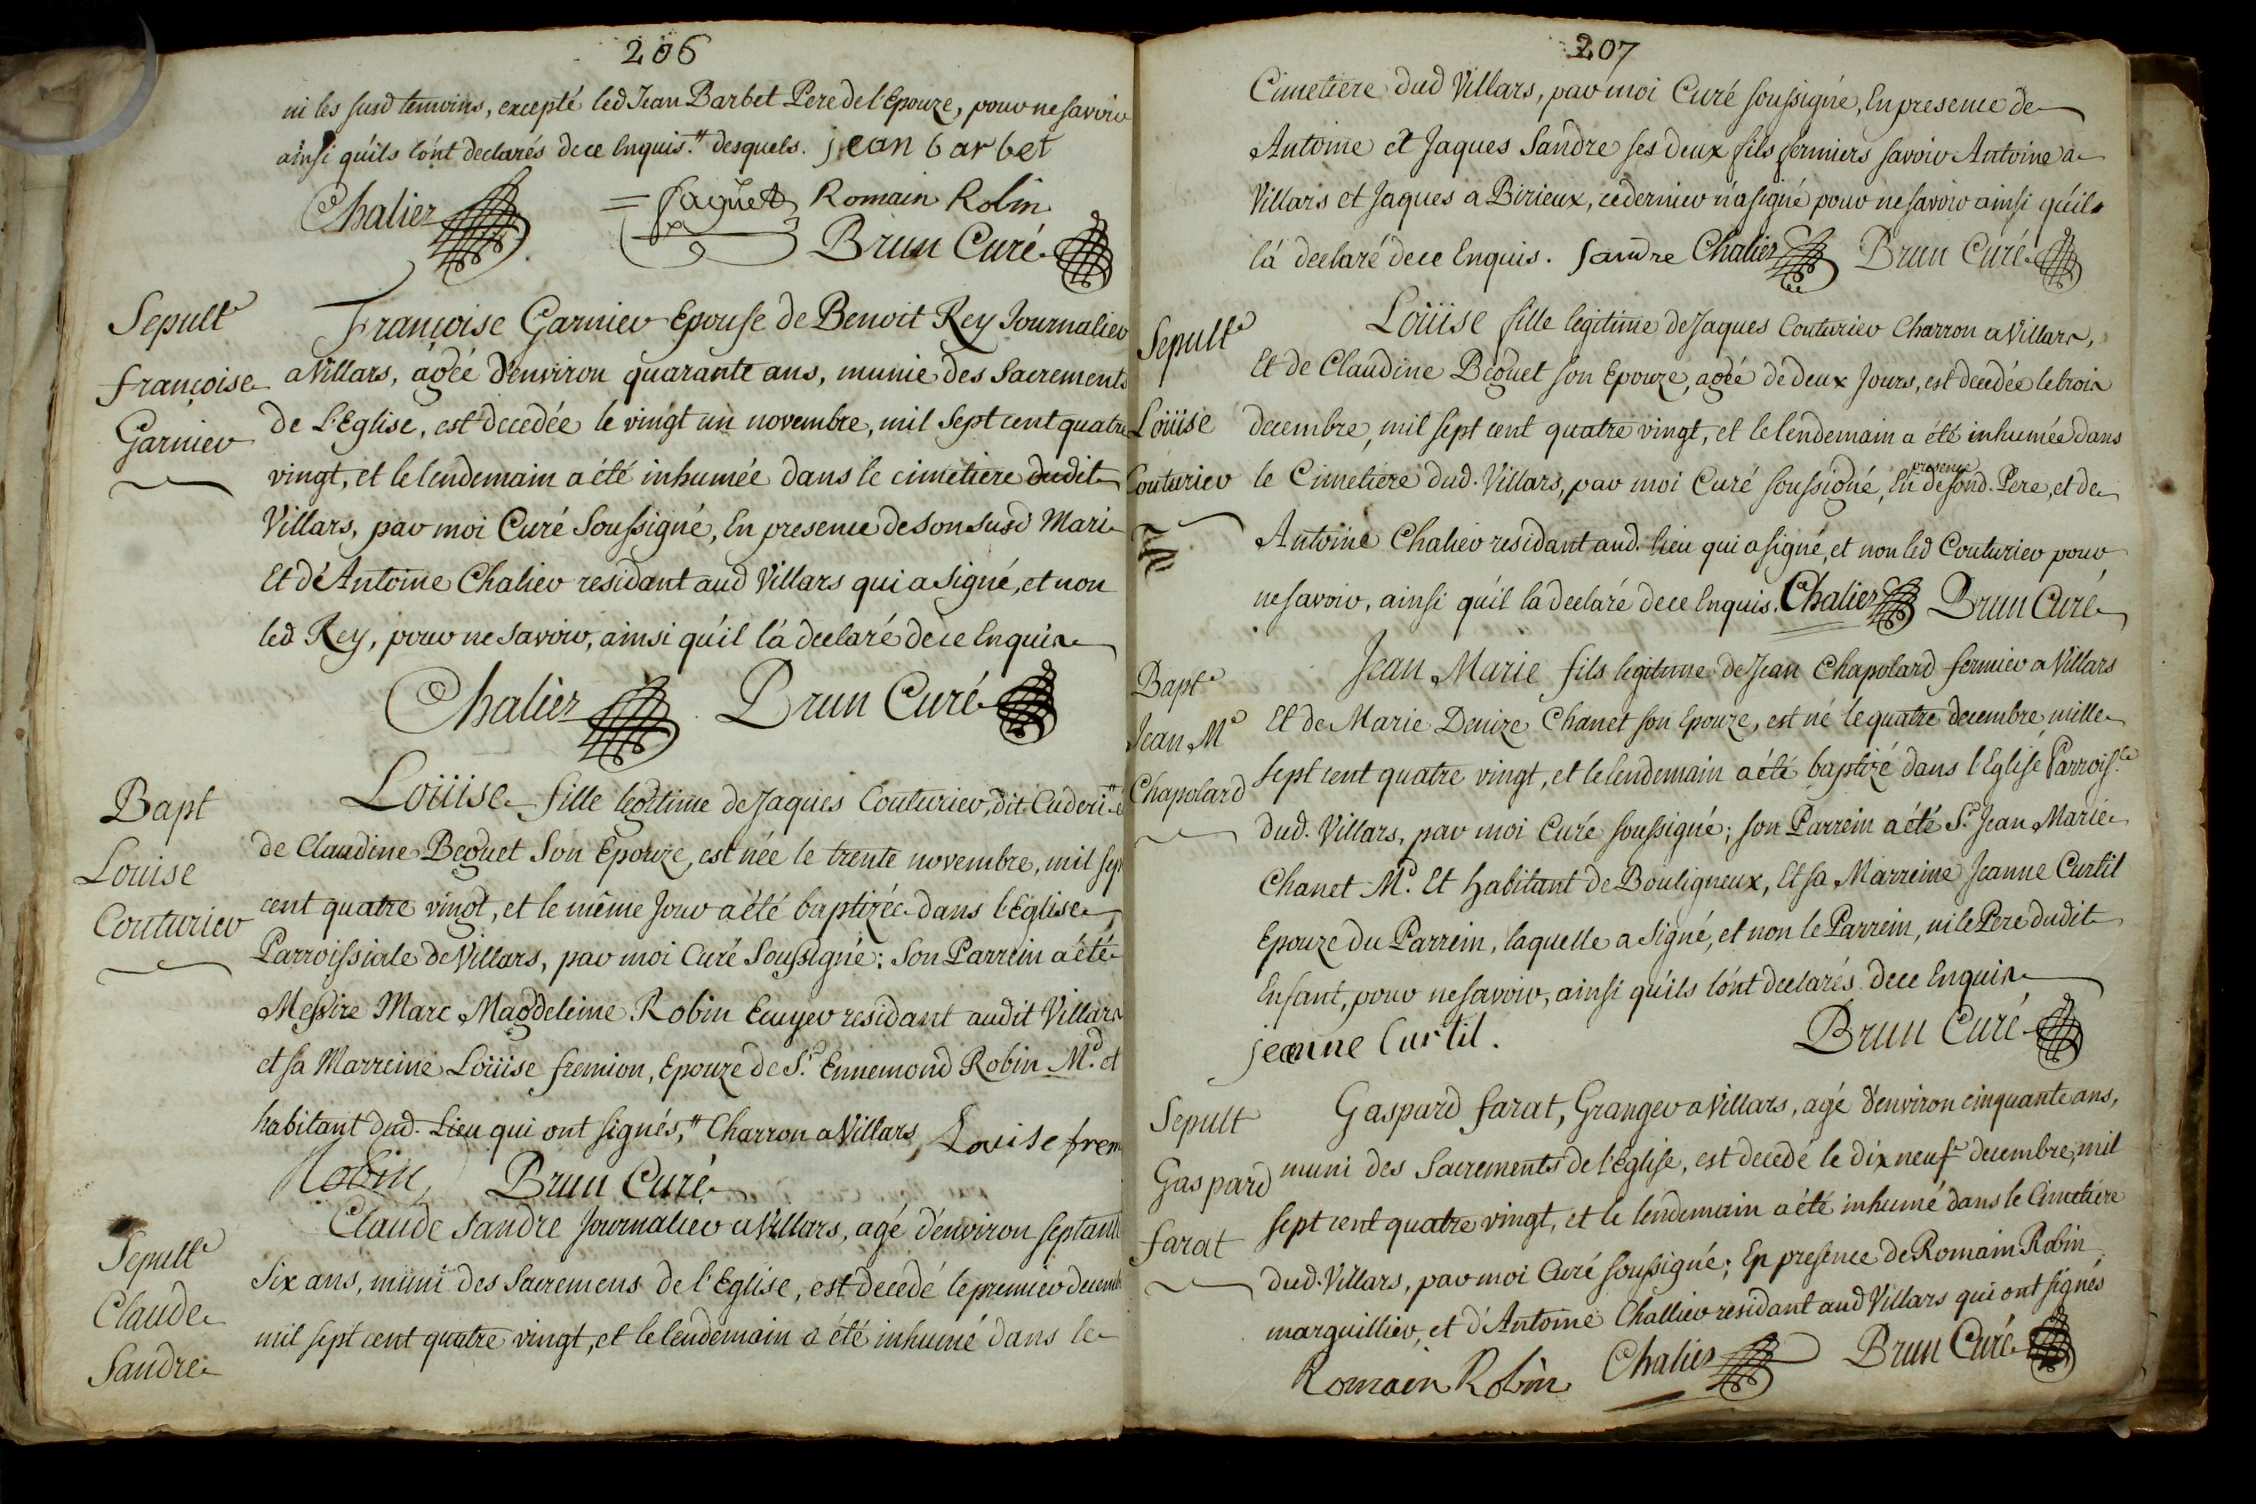 206
ni les susd temoins, excepté led Jean Barbet Pere de l'Epouze, pour ne savoir
ainsi qu'ils l'ont declarés de ce Enquis. desquels. jean barbet
Chalier = faguet Romain Robin
Brun Curé
Sepult.e
françoise
Garnier
Françoise Garnier Epouse de Benoit Rey Journalier
a Villars, agée d'environ quarante ans, munie des Sacrements
de L'Eglise, est decedée le vingt un novembre, mil sept cent quatre
vingt, et le lendemain a été inhumée dans le cimetiere dudit
Villars, par moi Curé Soussigné, En presence de son susd Mari
Et d'Antoine Chalier residant aud Villars qui a signé, et non
led Rey, pour ne savoir, ainsi qu'il l'a declaré de ce Enquis
Chalier Brun Curé
Bapt
Louise
Couturier
Loüise fille legitime de Jaques Couturier, dit
de Claudine Beguet Son Epouze, est née le trente novembre, mil sep
cent quatre vingt, et le même Jour a été baptizée dans l'Eglise
Parroissiale de Villars, par moi Curé Soussigné; Son Parrein a été
Messire Marc Magdeleine Robin Ecuyer residant audit Villars
et sa Marreine Loüise fremion, Epouze de S.r Ennemond Robin M.d et
habitant dud. Lieu qui ont signés, " Charron a Villars Louise frem
Robin Brun Curé
Sepult.e
Claude
Sandre
Claude Sandre Journalier a Villars, agé d'environ septante
Six ans, muni des Sacremens de l'Eglise, est decedé le premier decemb
mil sept cent quatre vingt, et le lendemain a été inhumé dans le
207
Cimetiere dud Villars, par moi Curé soussigné, En presence de
Antoine et Jaques Sandre ses deux fils fermiers savoir Antoine a
Villars et Jaques a Birieux, ce dernier n'a signé pour ne savoir ainsi qu'il
l'a declaré de ce Enquis. Sandre Chalier Brun Curé
Sepult.e
Loüise
Couturier
Loüise fille legitime de Jaques Couturier Charron a Villars,
Et de Claudine Beguet son Epouze, agée de deux Jours, est decedée le trois
decembre, mil sept cent quatre vingt, et le lendemain a été inhumée dans
le Cimetiere dud. Villars, par moi Curé soussigné, En presence de sond. Pere, et de
Antoine Chalier residant aud. lieu qui a signé, et non led Couturier pour
ne savoir, ainsi qu'il l'a declaré de ce Enquis. Chalier Brun Curé
Bapt.e
Jean M.e
Chapolard
Jean Marie fils legitime de Jean Chapolard fermier a Villars
Et de Marie Denize Chanet son Epouze, est né le quatre decembre mille
sept cent quatre vingt, et le lendemain a été baptizé dans l'Eglise Parrois.le
dud. Villars, par moi Curé soussigné; son Parrein a été S.r Jean Marie
Chanet M.d Et habitant de Bouligneux, Et sa Marreine Jeanne Curtil
Epouze du Parrein, laquelle a signé, et non le Parrein, ni le Pere dudit
Enfant, pour ne savoir, ainsi qu'ils l'ont declarés de ce Enquis
jeanne Curtil. Brun Curé
Sepult
Gaspard
farat
Gaspard farat, Granger a Villars, agé d'environ cinquante ans,
muni des Sacrements de l'Eglise, est decedé le dix neuf decembre, mil
sept cent quatre vingt, et le lendemain a été inhumé dans le Cimetiere
dud. Villars, par moi Curé soussigné; En presence de Romain Robin
marguillier, et d'Antoine Challier residant aud Villars qui ont signés
Romain Robin Chalier Brun Curé